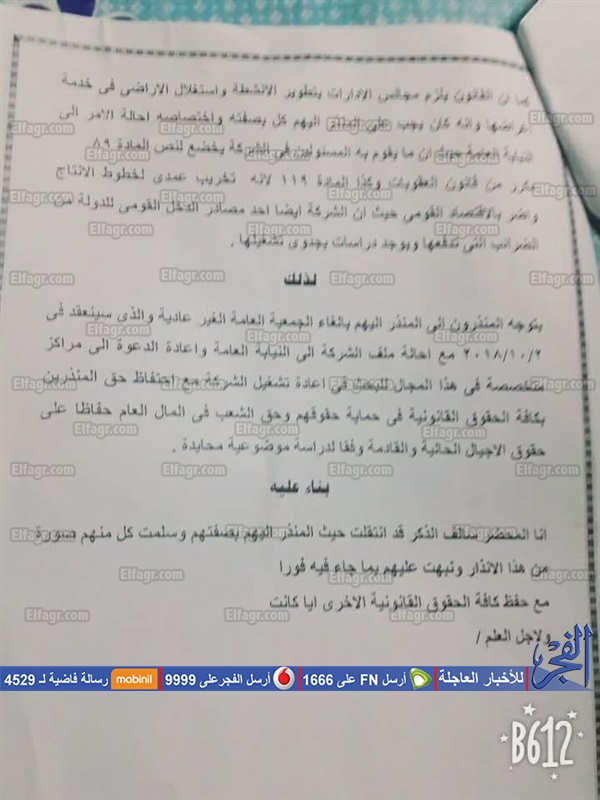 بما ان القانون يلزم مجالس الادارات بتطوير الانشطة واستغلال الاراضى فى خدمة
اغراضها وانه كان يجب على المنذر اليهم كل بصفته واختصاصه احالة الامر الى
النيابة العامة حيث ان ما يقوم به المسئولين فى الشركة يخضع لنص المادة ٨٩
مكرر من قانون العقوبات وكذا المادة ١١٩ لانه تخريب عمدى لخطوط الانتاج
ومضر بالاقتصاد القومى حيث ان الشركة ايضا احد مصادر الدخل القومى للدولة من
الضرائب التى تدفعها ويوجد دراسات بجدوى تشغيلها .
لذلك
يتوجه المنذرون الى المنذر اليهم بالغاء الجمعية العامة الغير عادية والذى سينعقد فى
٢٠١٨/١٠/٢ مع احالة ملف الشركة الى النيابة العامة واعادة الدعوة الى مراكز
متخصصة فى هذا المجال للبحث فى اعادة تشغيل الشركة مع احتفاظ حق المنذرين
بكافة الحقوق القانونية فى حماية حقوقهم وحق الشعب فى المال العام حفاظا على
حقوق الاجيال الحالية والقادمة وفقا لدراسة موضوعية محايدة .
بناء عليه
انا المحضر سالف الذكر قد انتقلت حيث المنذر اليهم بصفتهم وسلمت كل منهم صورة
من هذا الانذار ونبهت عليهم بما جاء فيه فورا
مع حفظ كافة الحقوق القانونية الاخرى ايا كانت
ولاجل العلم /
الفجر
للأخبار العاجلة أرسل FN على 1666 أرسل الفجر على 9999 mobinil رسالة فاضية لـ 4529
B612
Elfagr.com